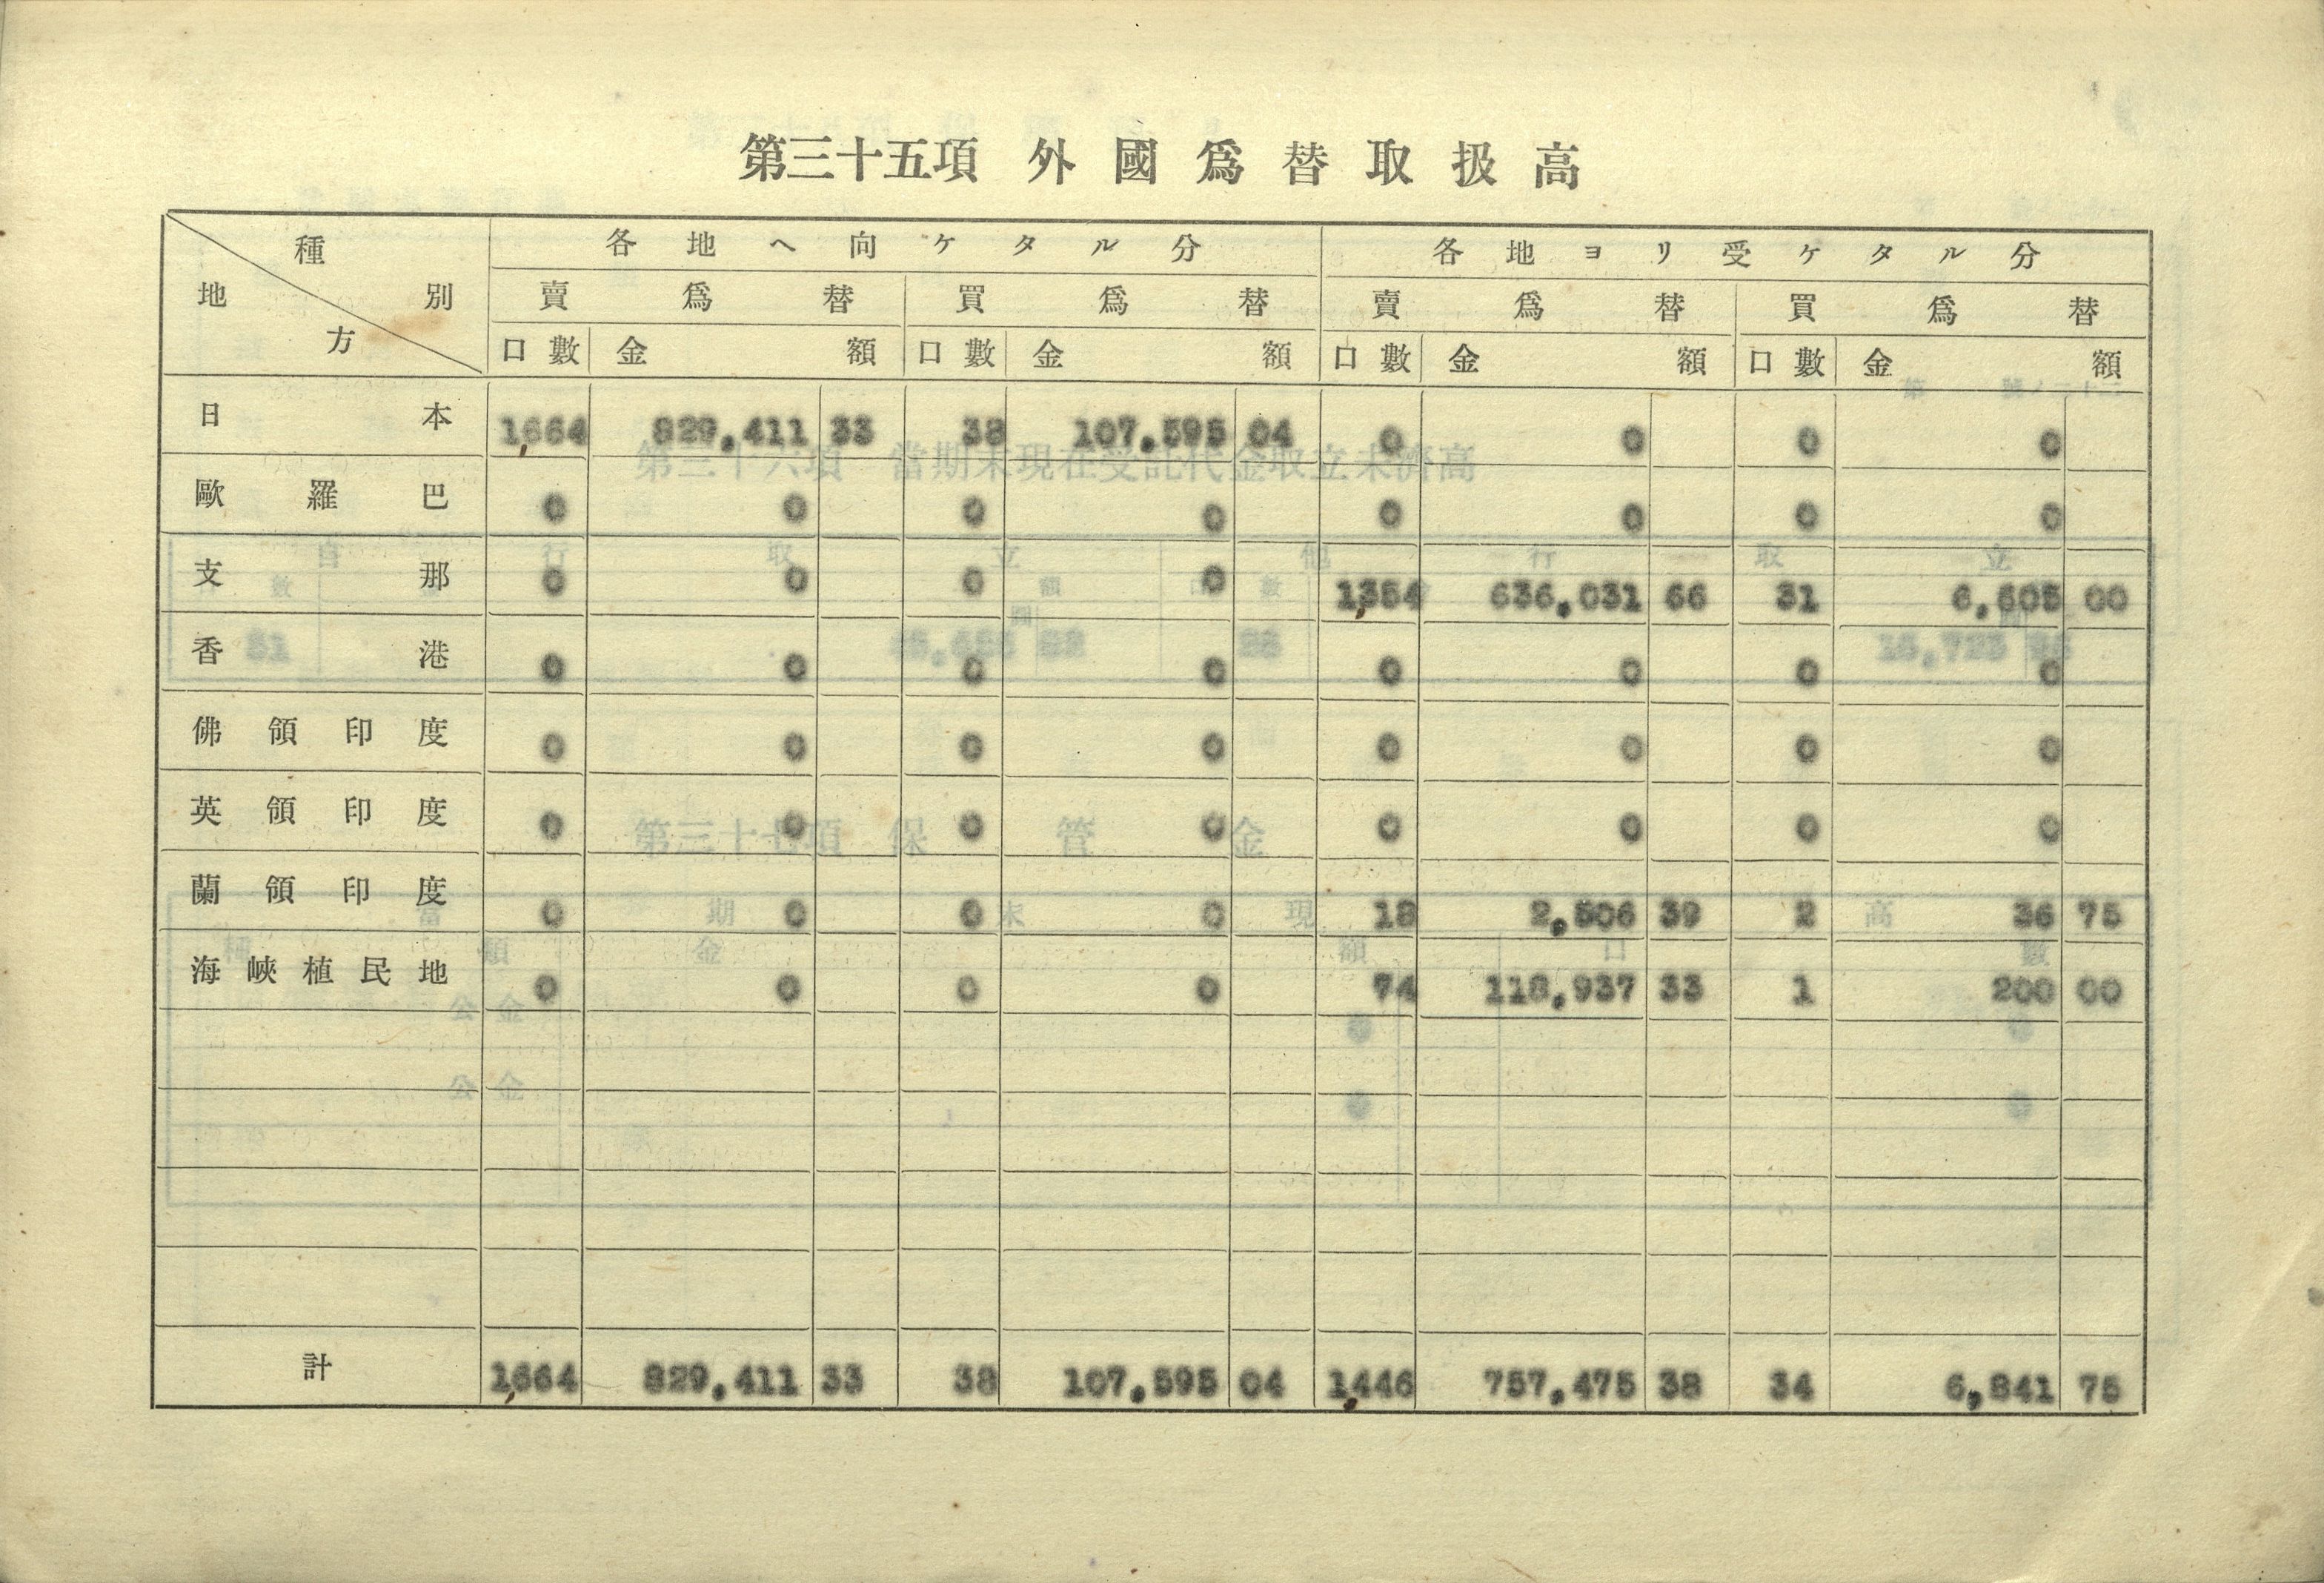 第三十五項 外國爲替取扱高
種別 地方 各地ヘ向ケタル分 各地ヨリ受ケタル分
賣爲替 買爲替 賣爲替 買爲替
口數 金額 口數 金額 口數 金額 口數 金額
日本 1,664 829,411 33 38 107,595 04 0 0 0 0
歐羅巴 0 0 0 0 0 0 0 0
支那 0 0 0 0 1,354 636,031 66 31 6,605 00
香港 0 0 0 0 0 0 0 0
佛領印度 0 0 0 0 0 0 0 0
英領印度 0 0 0 0 0 0 0 0
蘭領印度 0 0 0 0 18 2,506 39 2 36 75
海峽植民地 0 0 0 0 74 118,937 33 1 200 00
計 1,664 829,411 33 38 107,595 04 1,446 757,475 38 34 6,841 75